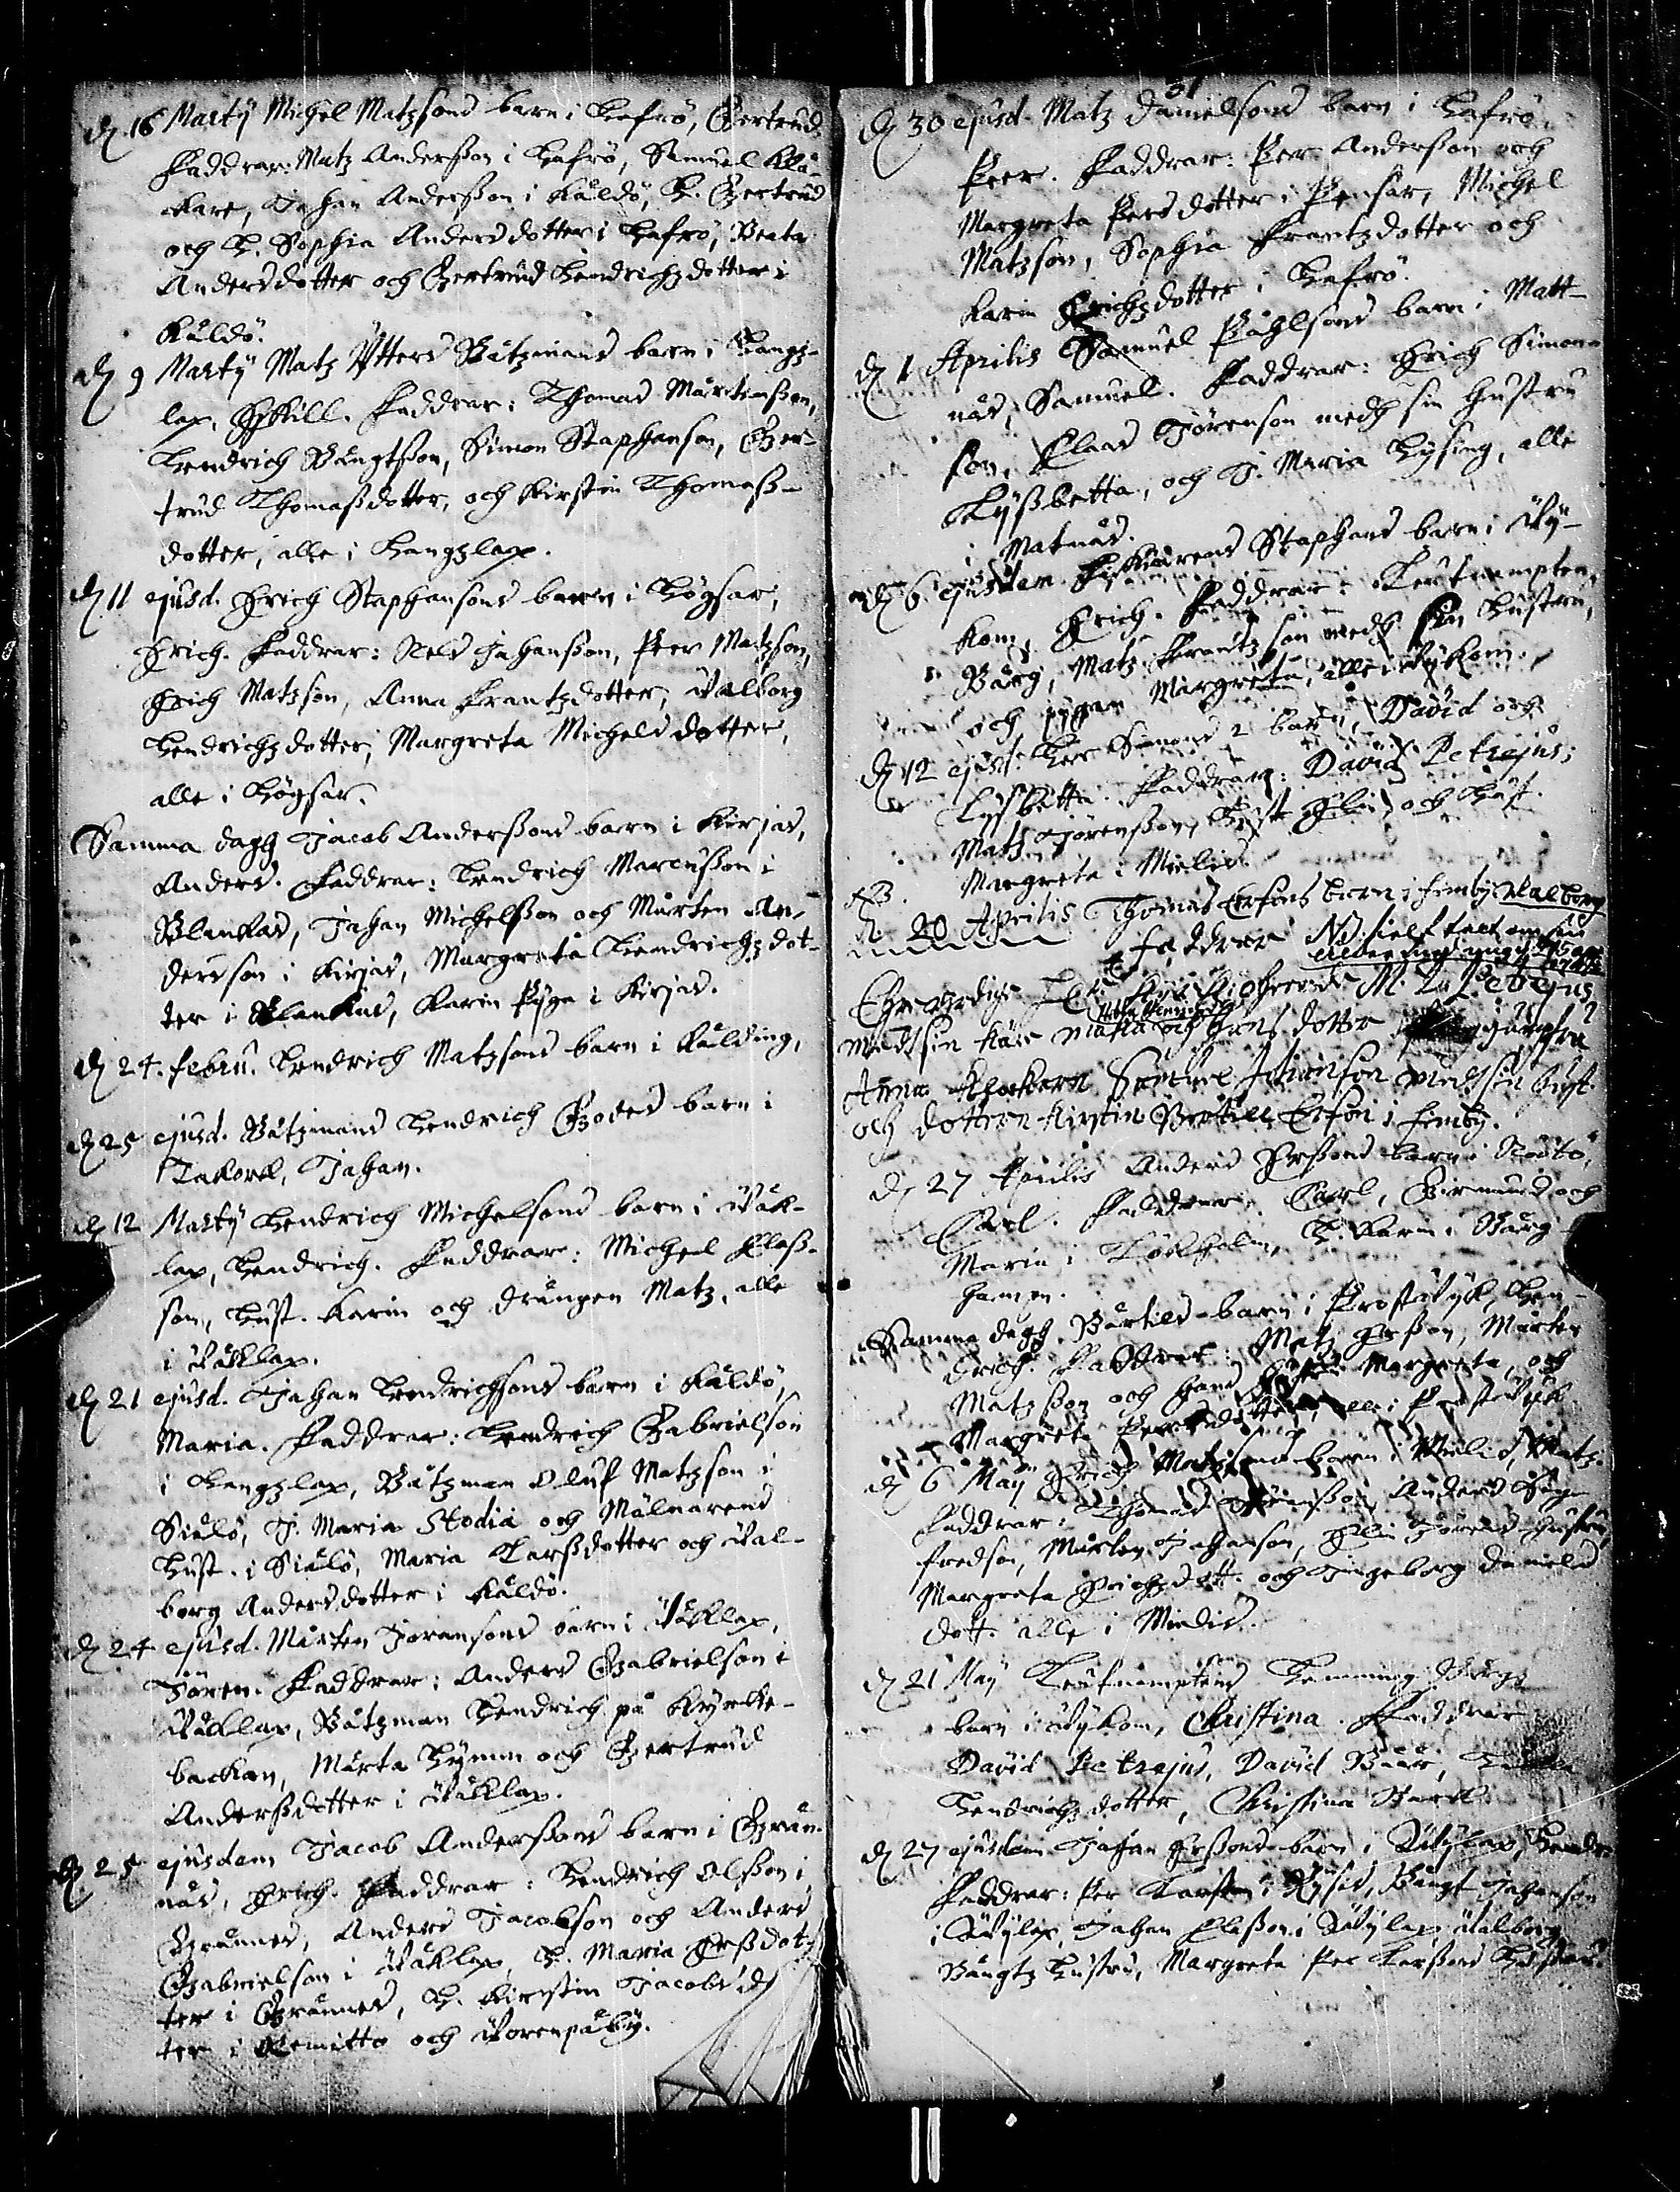 d. 16 Martÿ Michel Matzsons barn i Lofsö, Gertrud.
Faddrar: Matz Andersson i Lofsö, Samuel Klå-
ckare, Johan Andersson i Kåldö, H. Gertrud
och H. Sophia Andersdotter i Lofsö, Beata
Andersdotter och Gertrud Hendrichzdotter i
Kåldö.
d. 9 Martÿ Matz Båtzmans barn i Langz-
lax, Faddrar: Thomas Mårtensson,
Hendrich Bängtsson, Simon Staphanson, Ger-
trud Thomassdotter, och Kirstin Thomass-
dotter, alle i Langzlax.
d. 11 ejusd. Erich Staphansons barn i Högsar,
Erich. Faddrar: Nels Johansson, Peer Matzson,
Erich Matzson, Anna Frantzdotter, Walborg
Hendrichzdotter, Margreta Michelsdotter,
alle i Högsar.
Samma dagh Jacob Anderssons barn i Kirjas,
Anders. Faddrar: Hendrich Marcusson i
Blankas, Johan Michelsson och Mårten An-
dersson i Kirjas, Margreta Hendrichzdot-
ter i Blankas, Karin Pÿga i Kirjas.
d. 24. febru. Hendrich Matzsons barn i Kulding,
d. 25 ejusd. Båtzmans Hendrich Godes barn i
Takork, Johan.
d. 12 Martÿ Hendrich Michelsons barn i Wåk-
lax, Hendrich. Faddrar: Michel Class-
son, Hust. Karin och drängen Matz, alle
i Wåklax.
d. 21 ejusd. Johan Hendrichsons barn i Kåldö,
Maria. Faddrar: Hendrich Gabrielson
i Langzlax, Båtzman Oluf Matzson i
Siälö, J. Maria Stodia och Målnarens
Hust. i Siälö, Maria Larssdotter och Wal-
borg Andersdotter i Kåldö.
d. 24 ejusd. Mårten Joransons barn i Wåklax,
Jören. Faddrar: Anders Gabrielson i
Wåklax, Båtzman Hendrich på Kyrke-
backan, Märta och Gertrud
Anderssdotter i Wåklax.
d. 25 ejusdem Jacob Anderssons barn i Grän-
näs, Erich. Faddrar: Hendrich Olsson i
Grännes, Anders Jacobson och Anders
Gabrielson i Wåklax, H. Maria Erssdot-
ter i Grännes, H. Kirstin Jacobsd
ter i Kemitto och
d. 30 ejusd. Matz Danielsons barn i Lofsö,
Peer. Faddrar: Per Andersson och
Margreta Persdotter i Pensar, Michel
Matzson, Sophia Frantzdotter och
Karin Erichzdotter i Lofsö.
d. 1 Aprilis Samuel Påhlsons barn i Matt-
näs, Samuel. Faddrar: Erich Simon-
son, Claas Jörenson medh sin hustru
Lyssbetta, och J. Maria Lysing, alle
i Matnäs.
d. 6 ejusdem Staphans barn i Wÿ-
kom, Erich. Faddrar: Leutnampten
Bärg, Matz Frantzson medh sin Hustru,
och pigan Margreta, alle i Wÿkom.
d. 12 ejusd. Per Simons 2 barn, David och
Lysbetta. Faddrar: David Petrejus,
Matz Jörensson, Hust. Elin och Hust.
Margreta i Mielis.
NB.
d. 20 Aprilis Thomas Ersons barn i Finby Walborg
faddrar NB.
M. Petrejus
medh sin käre maka och hans dotter jungfru
Anna Klockaren Samuel Johanson medh sin hust.
och dottren Kirstin Bertill Erson i Finby.
d. 27 Aprilis Anders Erssons barn i Nötö,
Carl. Faddrar: Carl, Germund och
Maria i Lökholm, H. Karin i Bärg-
hamn.
Samma dagh Bertils barn i Prostwÿk, Hen-
drich. Faddrar: Matz Ersson, Mårten
Matzsson och hans hustru Margreta, och
Margreta Persdotter, alle i Prostwÿk
d. 6 Maÿ Erich Matzsons barn i Mielis, Matz.
Faddrar: Thomas Jönsson, Anders Sig-
fredson, Mårten Johanson, Elin Jörens hustru,
Margreta Erichzdott. och Ingeborg Daniels
dott. alle i Mielis.
d. 21 Maÿ Leutnamptens Hemming Bärgs
barn i Wÿkom, Christina. Faddrar
David Petrejus, David
Hendrichzdotter, Christina
d. 27 ejusdem Johan Erssons barn i Wÿlax,
Faddrar: Per Larsson i Bängt Johanson
i Wÿlax, Johan Classon i Wÿlax, Walborg
Bängtz Hustru, Margreta Per Larssons Hustru.